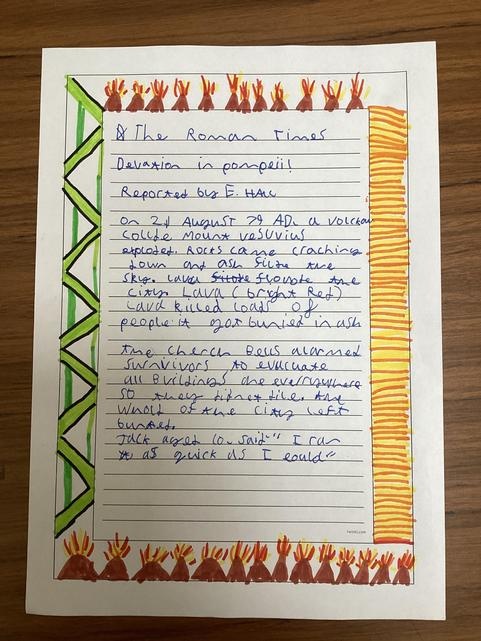 The Roman Times
Devation in pompeii!
Reported by E. Hall
on 24 August 79 AD. a volcan
collde Mount vesuvius
exploded. Rocks came craching
down and ash fillde the
sky. Lava flovode the
city Lava (bright Red)
Lava killed loads of
people it got buried in ash
the cherch Bells alarmed
survivors to evacuate
all Buildings are everywhere
so they didnet die. the
whole of the city left
buried.
Jack aged 10. said "I ran
as quick as I could"
twinkl.com